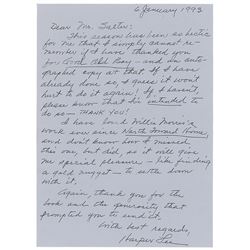 6 January 1993
Dear Mr. Sartor:
This season has been so hectic
for me that I simply cannot re-
member if I have thanked you
for Good Old Boy - and an auto-
graphed copy at that. If I have
already done so, I guess it won't
hurt to do it again! If I haven't,
please know that I intended to
do so - THANK YOU!
I have loved Willie Morris's
work ever since North Toward Home,
and don't know how I missed
this one, but did, so it will give
me special pleasure - like finding
a gold nugget - to settle down
with it.
Again, thank you for the
book and the generosity that
prompted you to send it.
With best regards,
Harper Lee